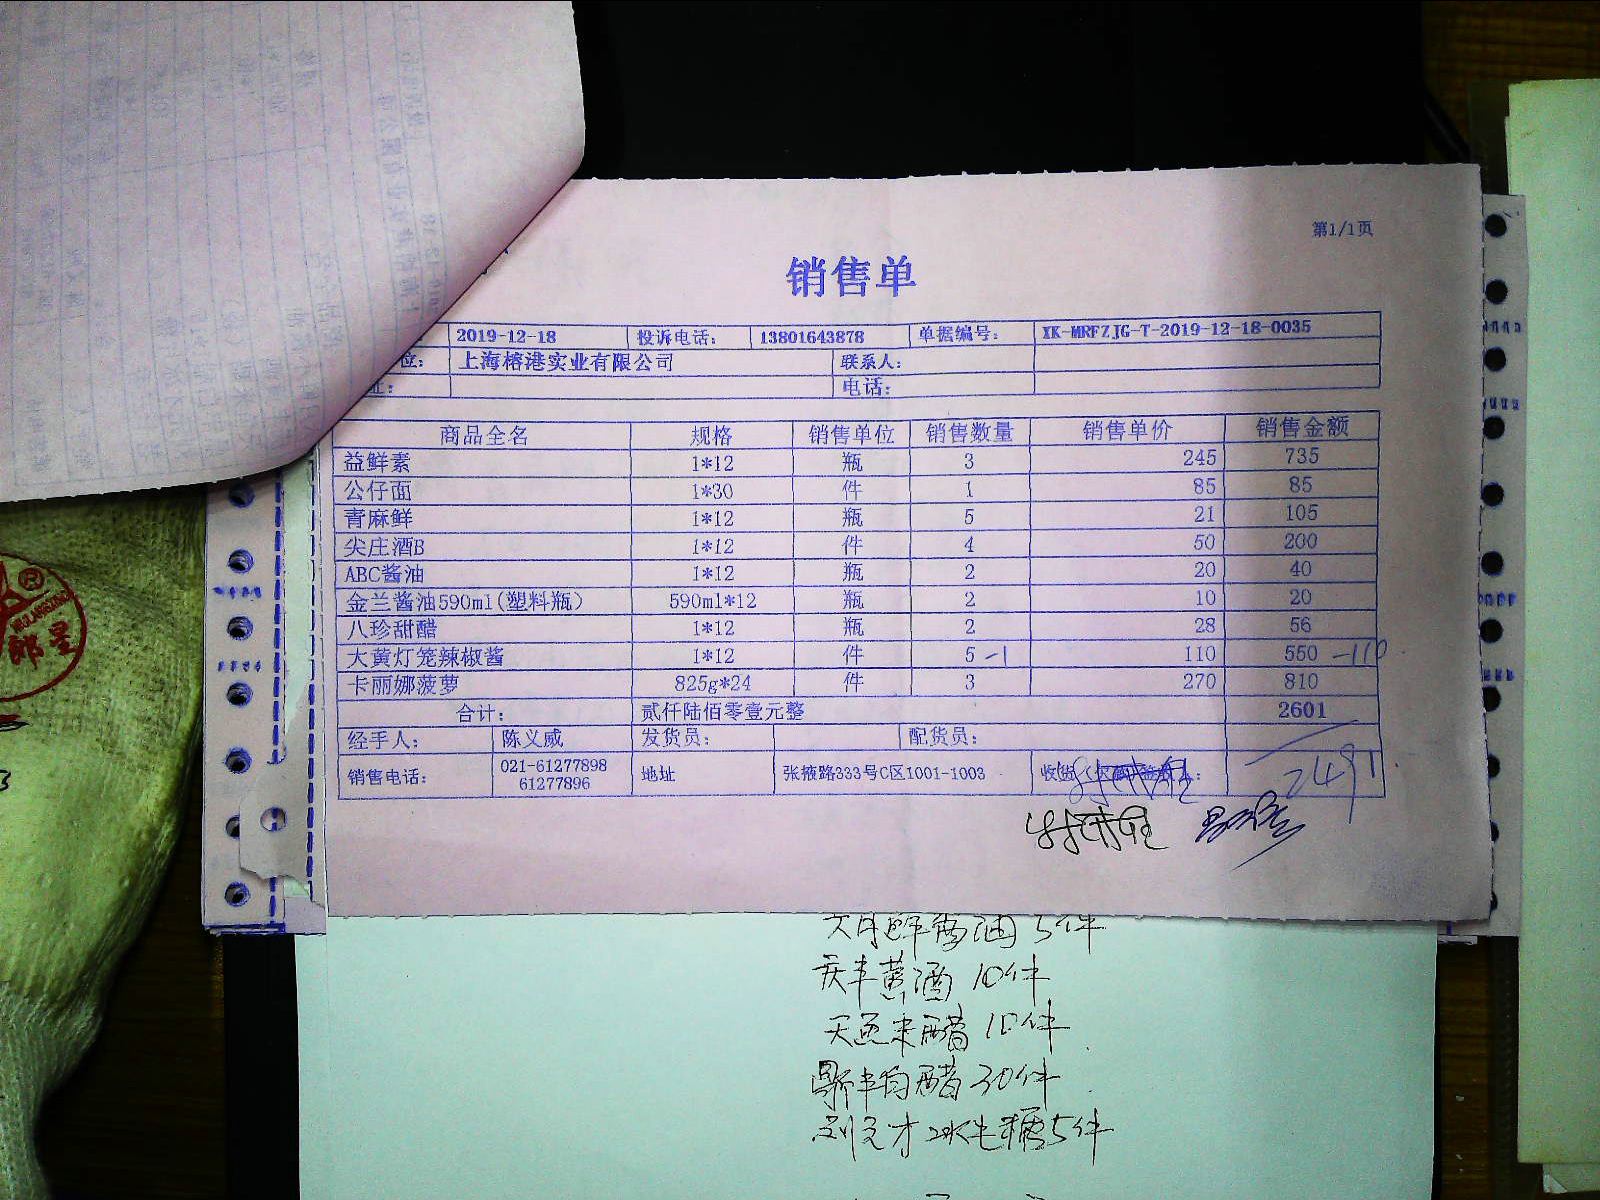 第1/1页
销售单
2019-12-18 投诉电话: 13801643878 单据编号: XK-MRFZJG-T-2019-12-18-0035
位: 上海榕港实业有限公司 联系人:
址: 电话:
商品全名 规格 销售单位 销售数量 销售单价 销售金额
益鲜素 1*12 瓶 3 245 735
公仔面 1*30 件 1 85 85
青麻鲜 1*12 瓶 5 21 105
尖庄酒B 1*12 件 4 50 200
ABC酱油 1*12 瓶 2 20 40
金兰酱油590ml(塑料瓶) 590ml*12 瓶 2 10 20
八珍甜醋 1*12 瓶 2 28 56
大黄灯笼辣椒酱 1*12 件 5 -1 110 550 -110
卡丽娜菠萝 825g*24 件 3 270 810
合计: 贰仟陆佰零壹元整 2601
经手人: 陈义威 发货员: 配货员:
销售电话: 021-61277898 地址 张掖路333号C区1001-1003 2491
61277896
油 5件
黄酒 10件
米醋 10件
白醋 30件
糖5件